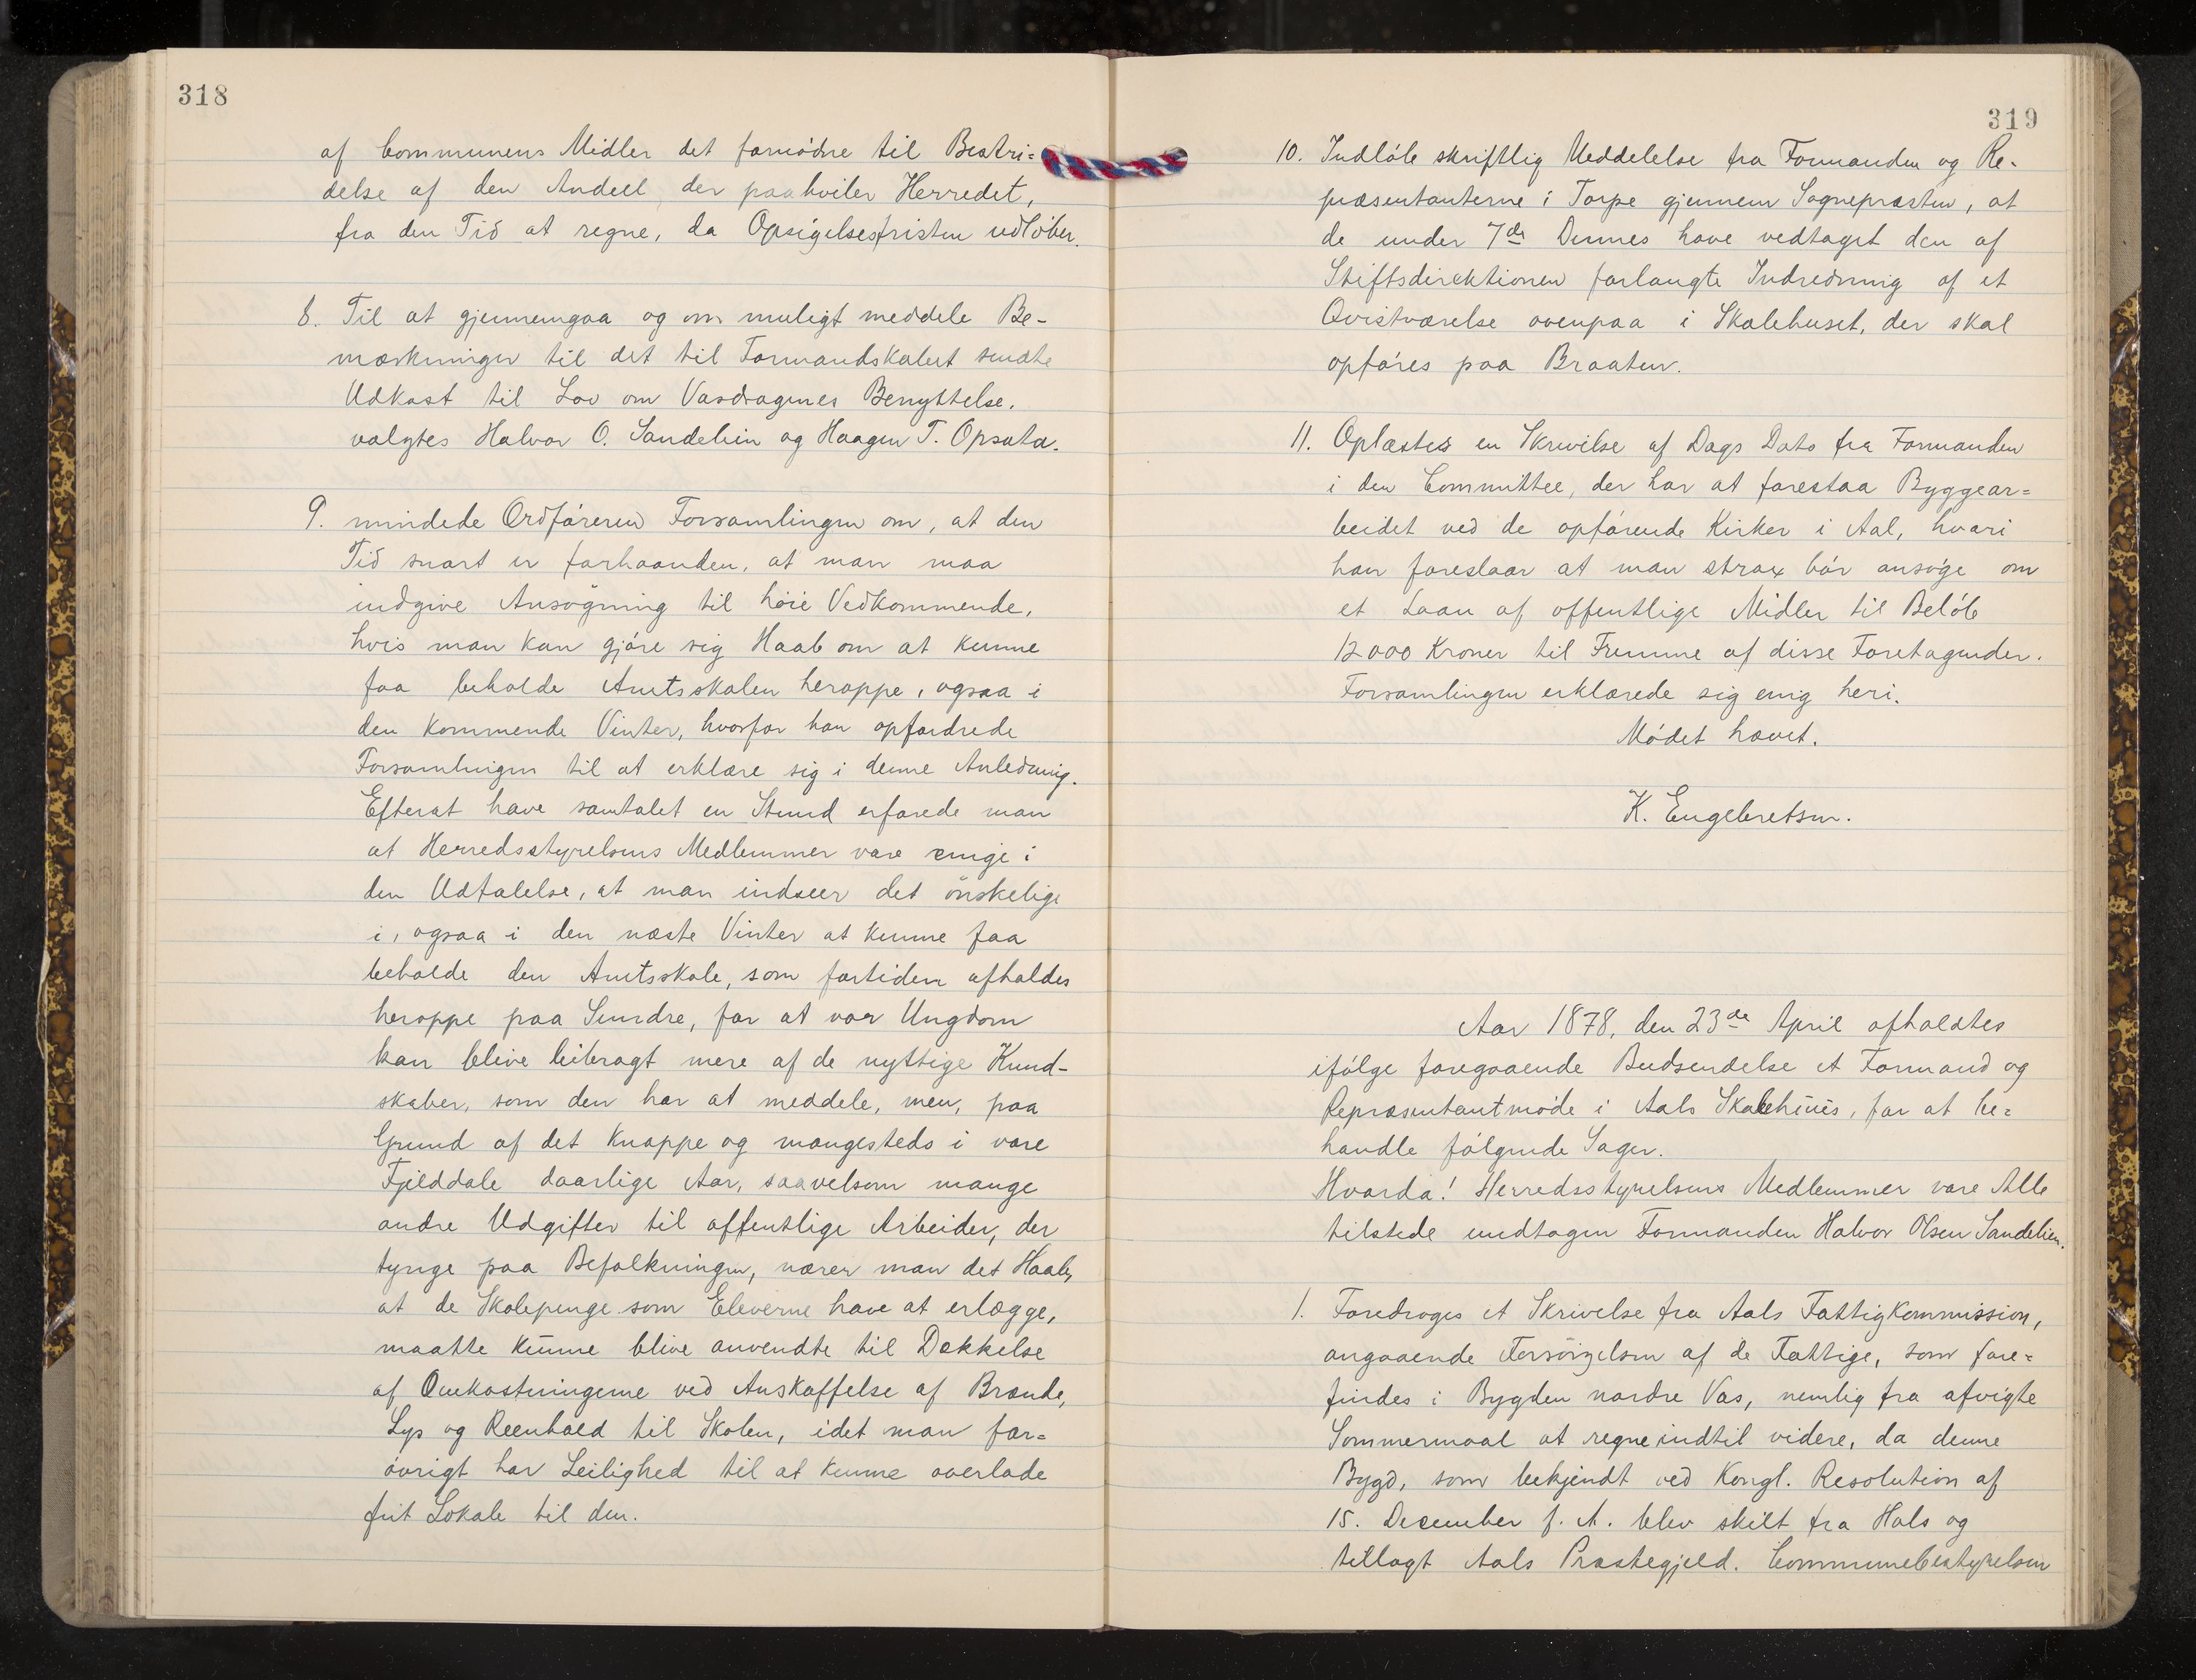 318
af Communens Midler det fornødne til Bestri=
delse af den Andeel, der paahviler Herredet,
fra den Tid at regne, da Opsigelsesfristen udløber.
8. Til at gjennemgaa og om muligt meddele Be-
mærkninger til det til Formandskabet sendte
Udkast til Lov om Vasdragenes Benyttelse,
valgtes Halvor O. Sandelien og Haagen T. Opsata.
9. mindede Ordføreren Forsamlingen om, at den
Tid snart er forhaanden, at man maa
indgive Ansøgning til høie Vedkommende,
hvis man kan gjøre sig Haab om at kunne
faa beholde Amtsskolen heroppe, ogsaa i
den kommende Vinter, hvorfor han opfordrede
Forsamlingen til at erklære sig i denne Anledning.
Efterat have samtalet en Stund erfarede man
at Herredsstyrelsens Medlemmer vare enige i
den Udtalelse, at man indseer det ønskelige
i, ogsaa i den næste Vinter at kunne faa
beholde den Amtsskole, som fortiden afholdes
heroppe paa Sundre, for at vor Ungdom
kan blive bibragt mere af de nyttige Kund-
skaber, som den har at meddele, men, paa
Grund af det knappe og mangesteds i vore
Fjelddale daarlige Aar, saavelsom mange
andre Udgifter til offentlige Arbeider, der
tynge paa Befolkningen, nærer man det Haab,
at de Skolepenge som Eleverne have at erlægge,
maatte kunne blive anvendte til Dækkelse
af Omkostningerne ved Anskaffelse af Brænde,
Lys og Reenhold til Skolen, idet man for=
øvrigt har Leilighed til at kunne overlade
frit Lokale til den.
319
10. Indløb skriftlig Meddelelse fra Formanden og Re-
præsentanterne i Torpe gjennem Sognepræsten, at
de under 7de Dennes have vedtaget den af
Stiftsdirektionen forlangte Indredning af et
Qvistværelse ovenpaa i Skolehuset, der skal
opføres paa Braaten.
11. Oplæstes en Skrivelse af Dags Dato fra Formanden
i den Committee, der har at forestaa Byggear=
beidet ved de opførende Kirker i Aal, hvori
han foreslaar at man strax bør ansøge om
et Laan af offentlige Midler til Beløb
12000 Kroner til Fremme af disse Foretagender.
Forsamlingen erklærede sig enig heri.
Mødet hævet.
K. Engebretsen.
Aar 1878, den 23de April afholdtes
ifølge foregaaende Budsendelse et Formand og
Repræsentantmøde i Aals Skolehuus, for at be=
handle følgende Sager.
Hvorda! Herredsstyrelsens Medlemmer vare Alle
tilstede undtagen Formanden Halvor Olsen Sandelien.
1. Foredroges et Skrivelse fra Aals Fattigkommission,
angaaende Forsørgelsen af de Fattige, som fore=
findes i Bygden nordre Vas, nemlig fra afvigte
Sommermaal at regne indtil videre, da denne
Bygd, som bekjendt ved Kongl. Resolution af
15. December f. A. blev skilt fra Hols og
tillagt Aals Præstegjeld. Communebestyrelsen